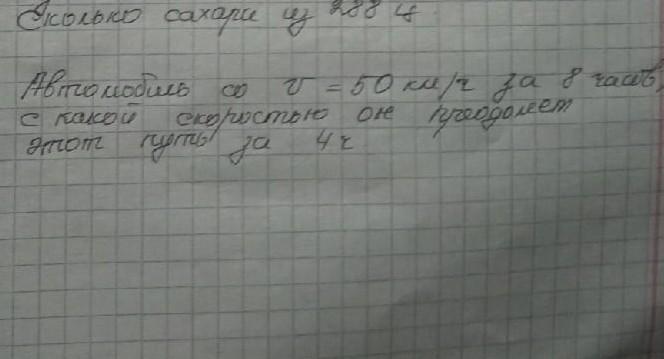 Сколько сахари из 288 ц.
Автомобиль со v = 50 км/ч за 8 часов,
с какой скоростью он преодолеет
этот путь за 4 ч